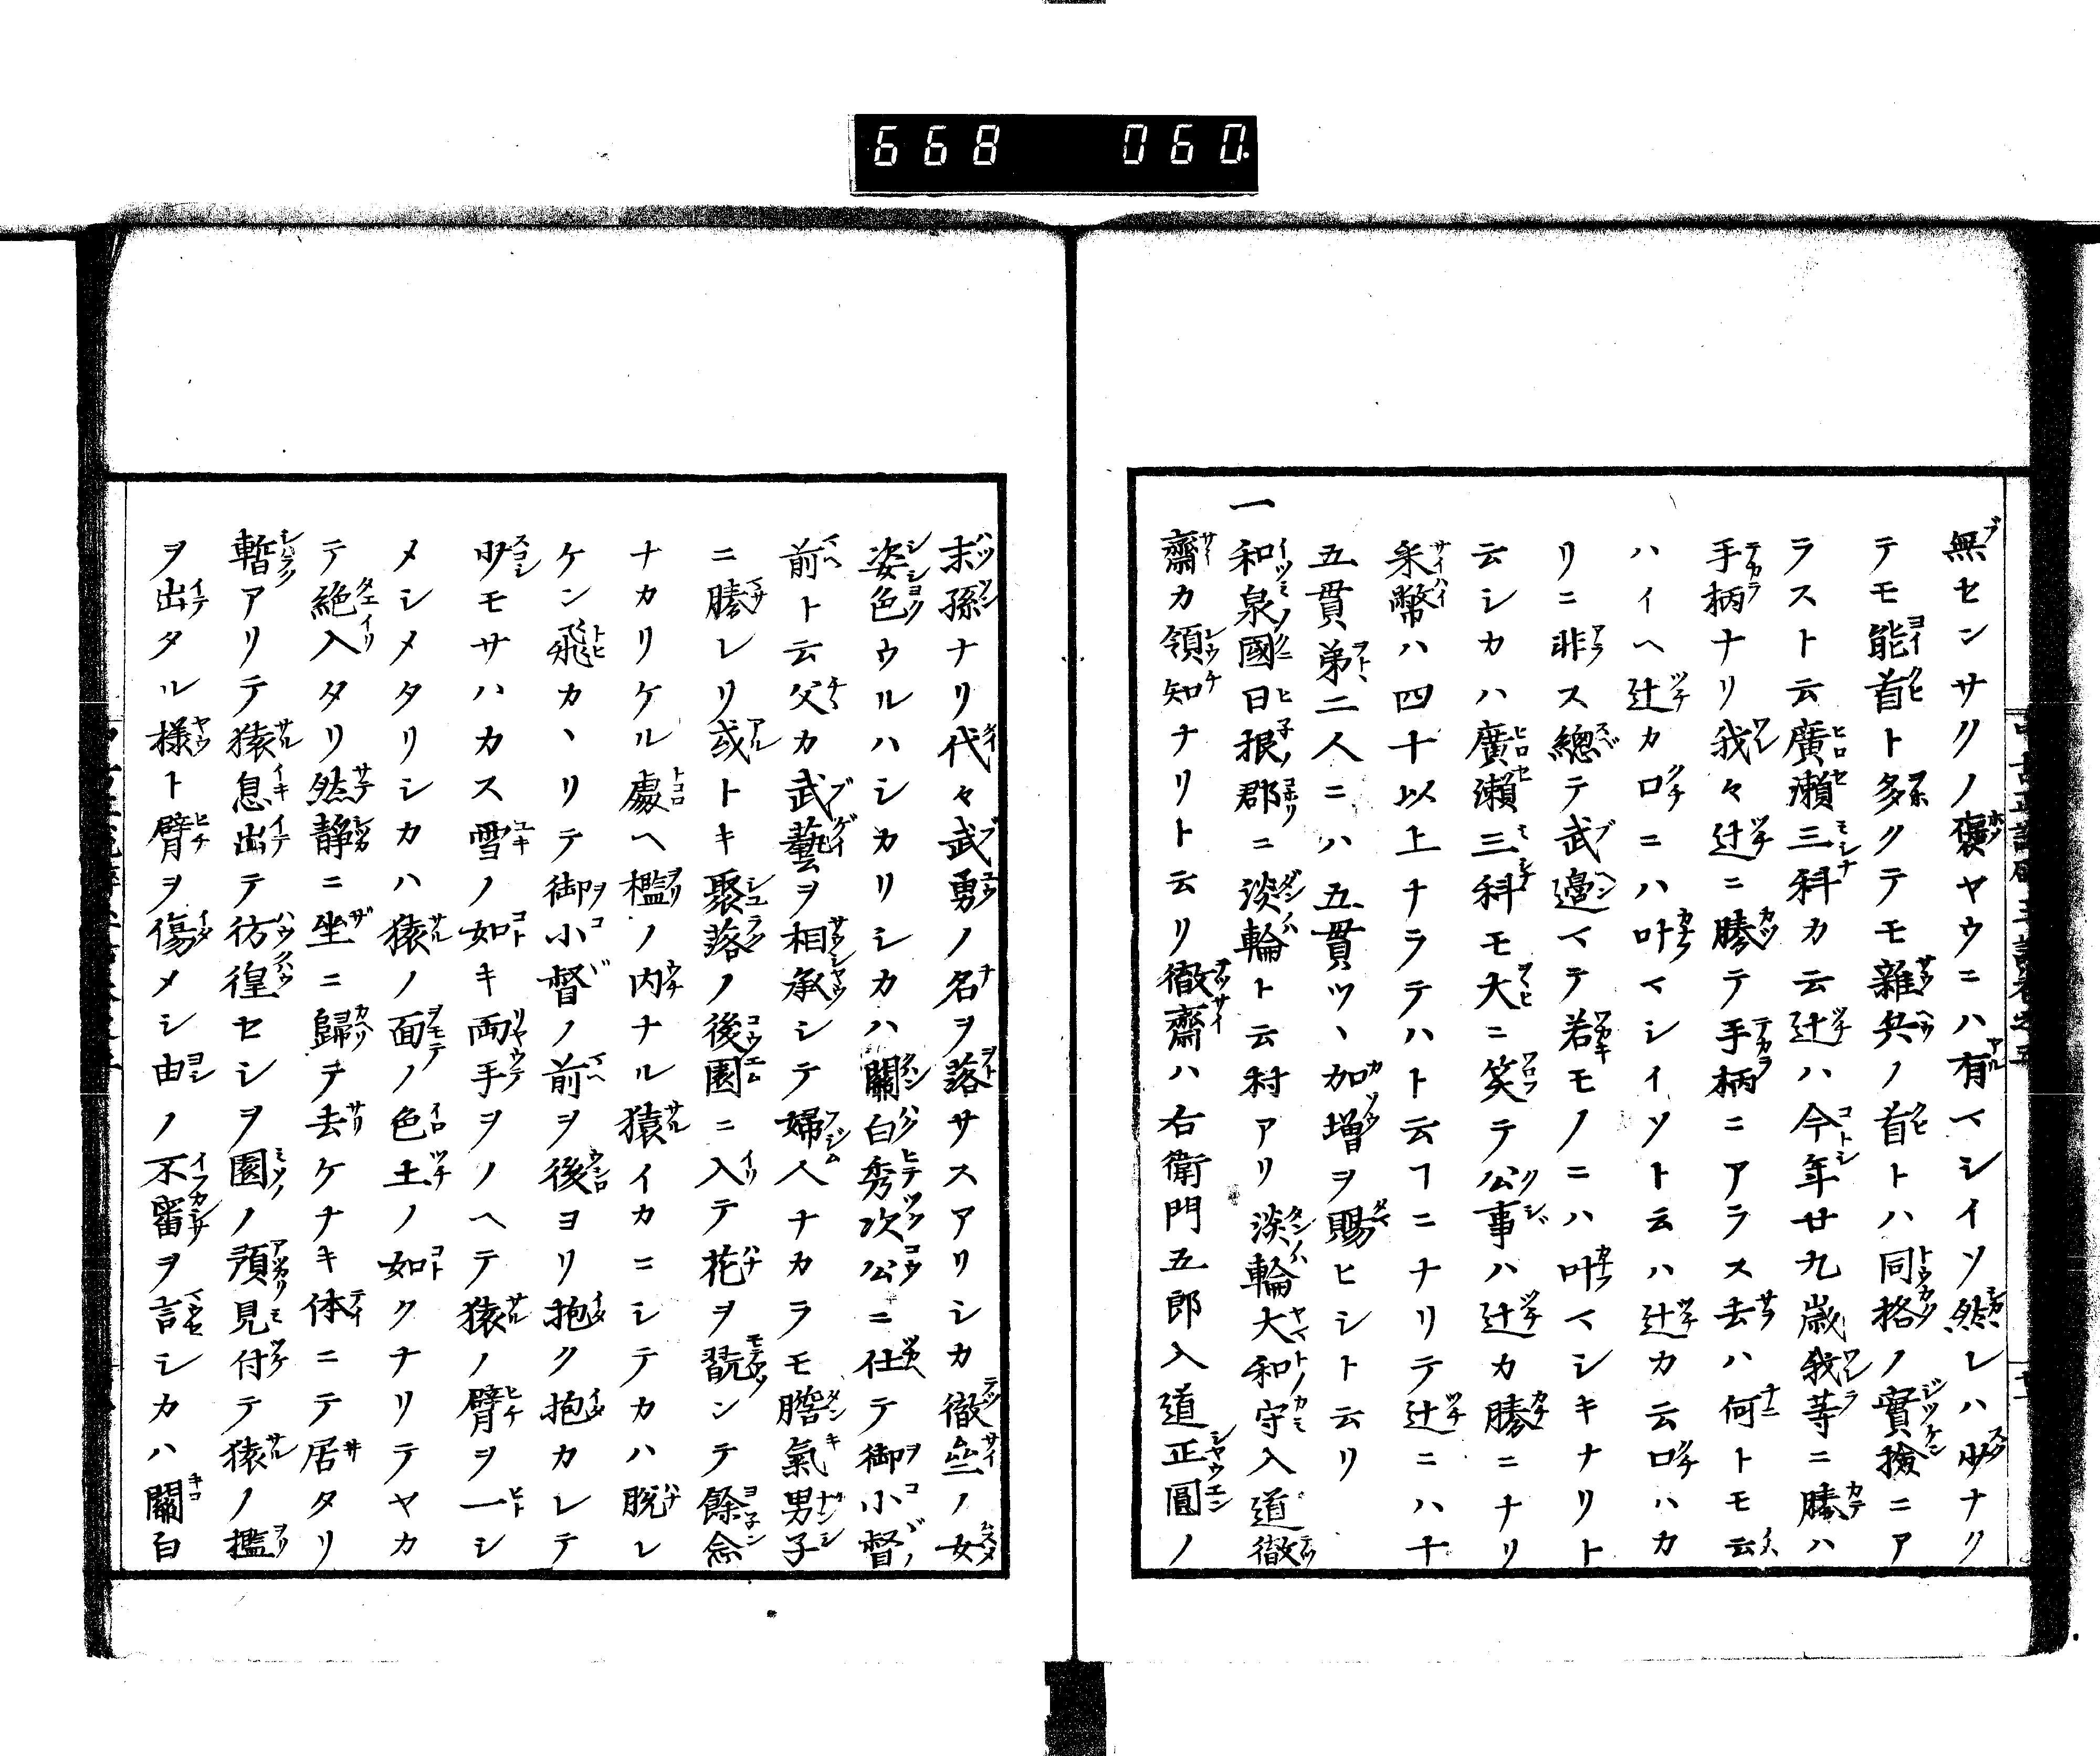 668 060
無センサクノ褒ヤウニハ有マシイソ然レハ少ナク
テモ能首ト多クテモ雜兵ノ首トハ同格ノ實撿ニア
ラスト云廣瀬三科カ云辻ハ今年廿九歳我等ニ勝ハ
手柄ナリ我々辻ニ勝テ手柄ニアラス去ハ何トモ云
ハイヘ辻カ口ニハ叶マシイソト云ハ辻カ云口ハカ
リニ非ス總テ武邉マテ若モノニハ叶マシキナリト
云シカハ廣瀬三科モ大ニ笑テ公事ハ辻カ勝ニナリ
釆幣ハ四十以上ナラテハト云ヿニナリテ辻ニハ千
五貫弟二人ニハ五貫ツヽ加増ヲ賜ヒシト云リ
一和泉國日根郡ニ淡輪ト云村アリ淡輪大和守入道徹
齋カ領知ナリト云リ徹齋ハ右衛門五郎入道正圓ノ
末孫ナリ代々武勇ノ名ヲ落サスアリシカ徹斎ノ女
姿色ウルハシカリシカハ關白秀次公ニ仕テ御小督
前ト云父カ武藝ヲ相承シテ婦人ナカラモ膽氣男子
ニ勝レリ或トキ聚落ノ後園ニ入テ花ヲ翫ンテ餘念
ナカリケル處ヘ檻ノ内ナル猿イカニシテカハ脱レ
ケン飛カヽリテ御小督ノ前ヲ後ヨリ抱ク抱カレテ
少モサハカス雪ノ如キ両手ヲノヘテ猿ノ臂ヲ一シ
メシメタリシカハ猿ノ面ノ色土ノ如クナリテヤカ
テ絶入タリ然静ニ坐ニ歸テ去ケナキ体ニテ居タリ
暫アリテ猿息出テ彷徨セシヲ園ノ預見付テ猿ノ檻
ヲ出タル様ト臂ヲ傷メシ由ノ不審ヲ言シカハ關白